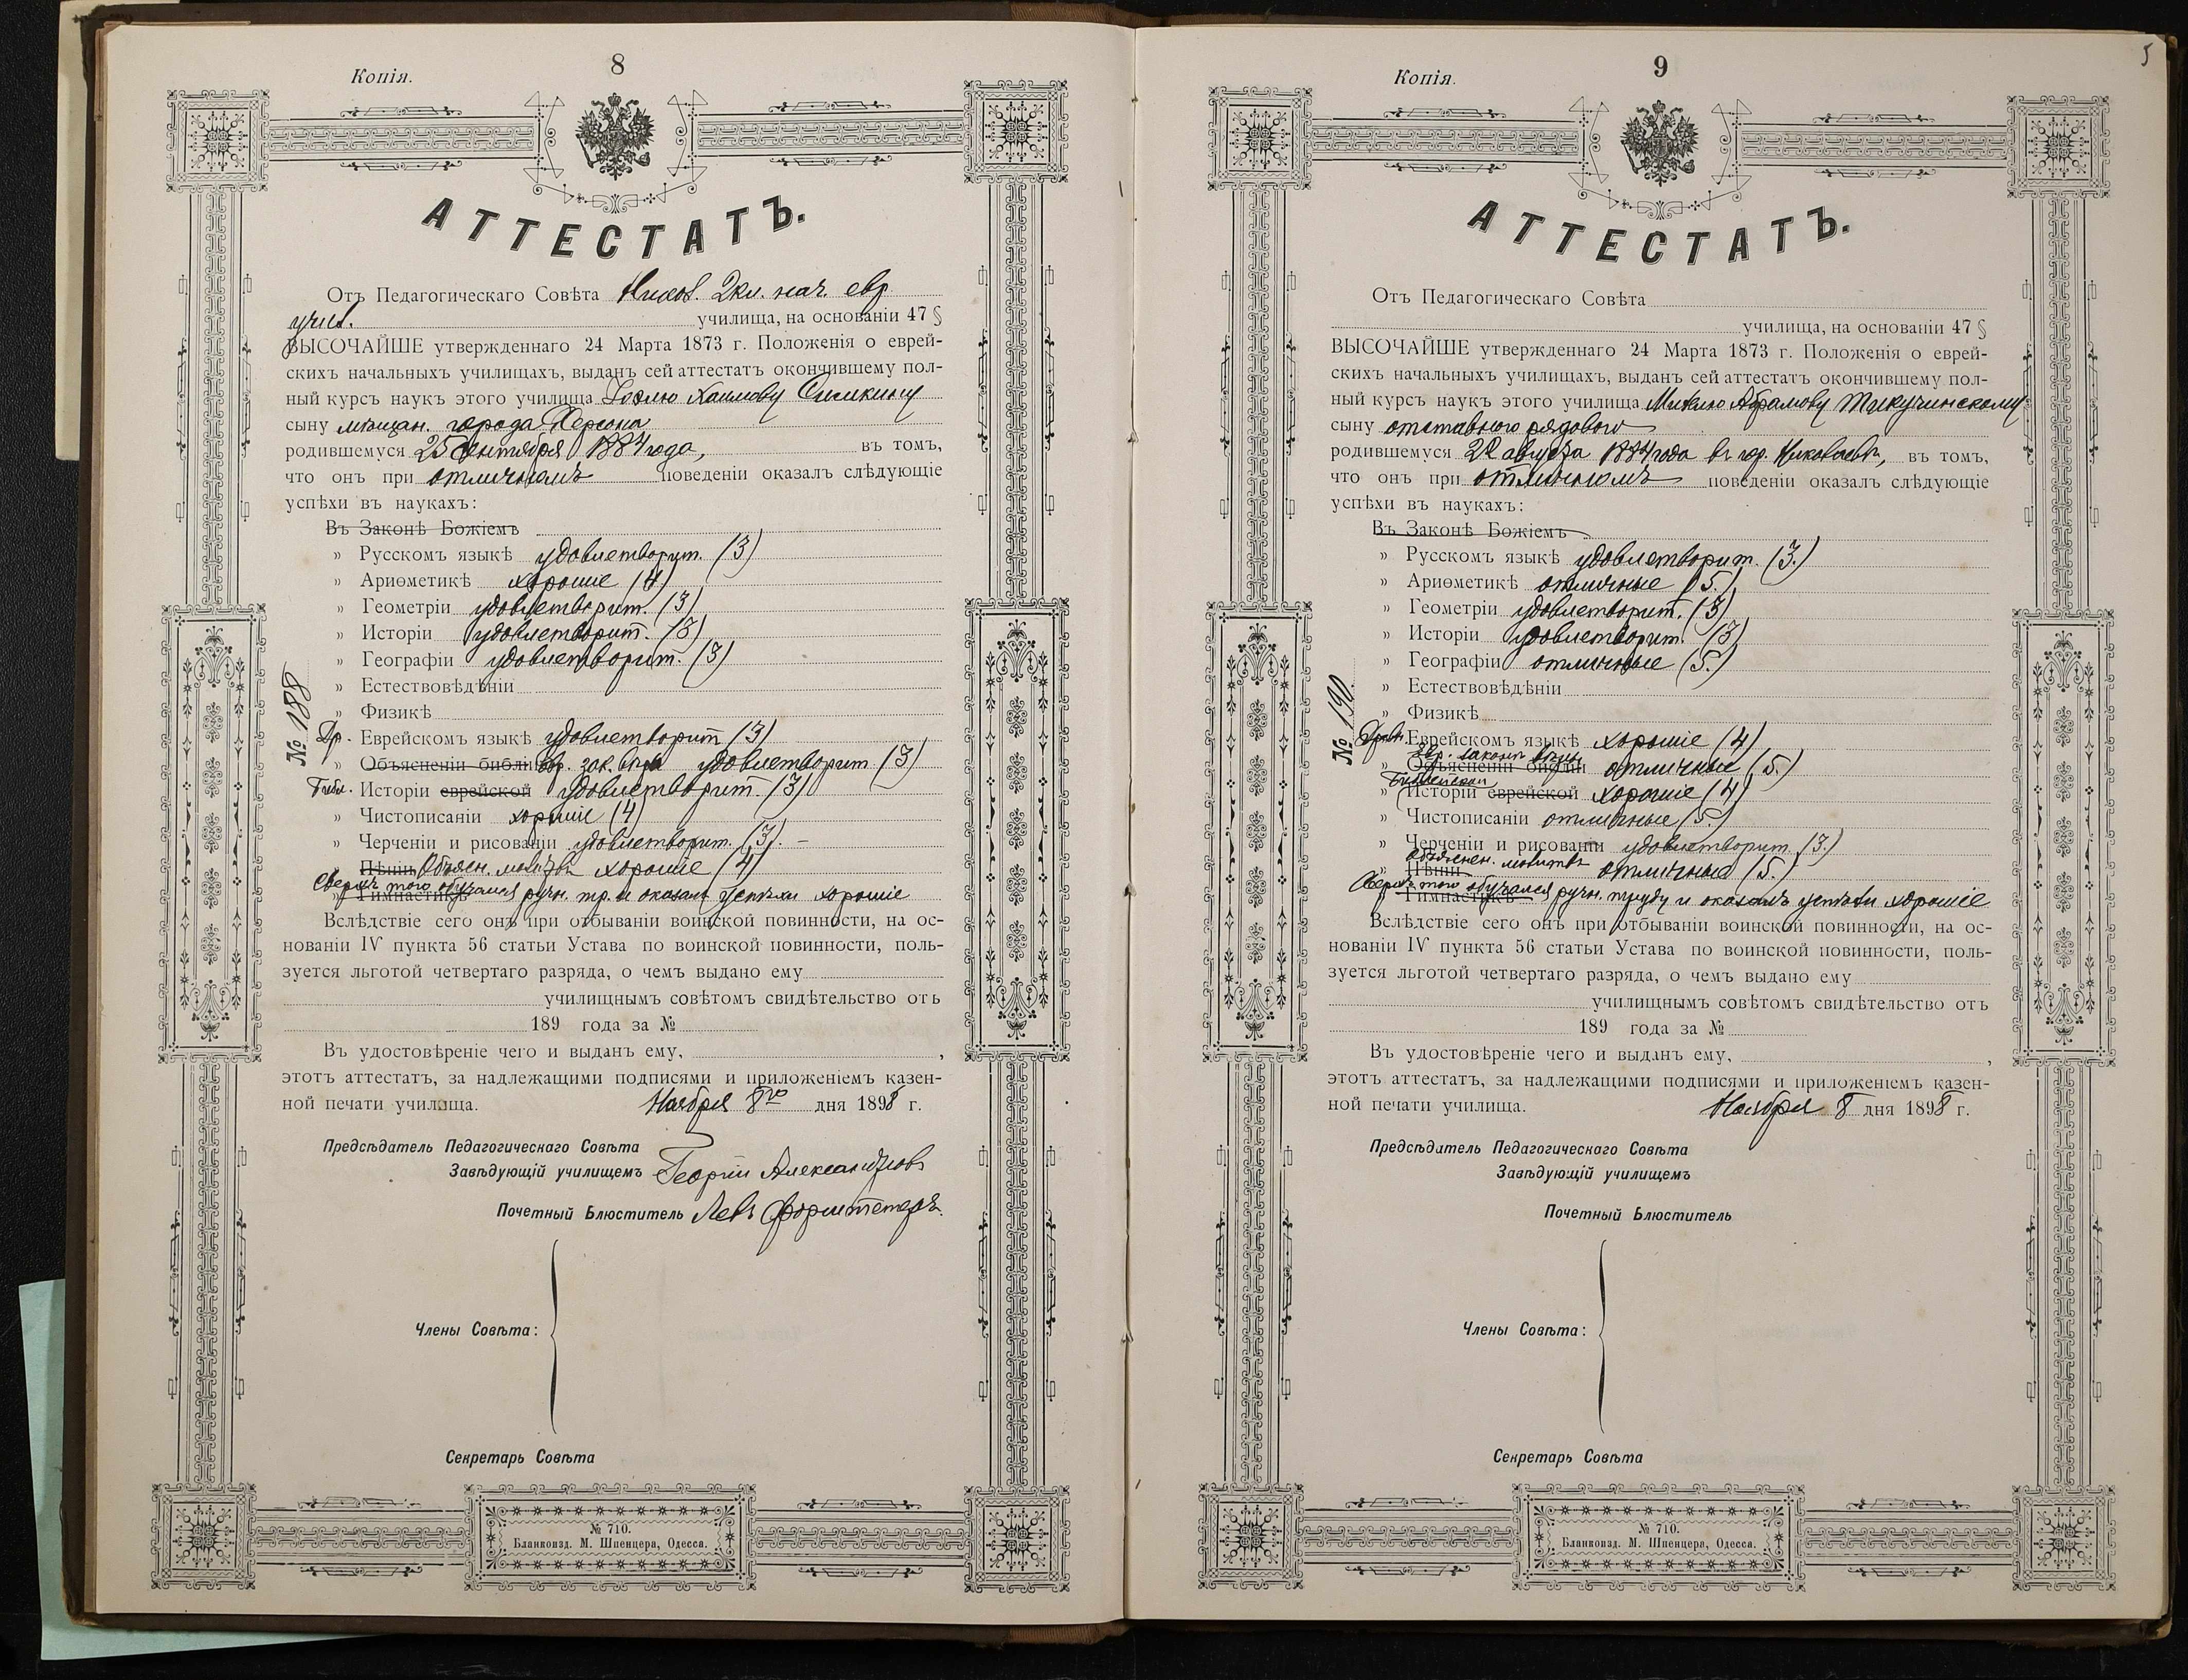 Копія.
8
АТТЕСТАТЪ.
Отъ Педагогическаго Совѣта Никол. 2кл. нач. евр.
учил. училища, на основаніи 47 §
ВЫСОЧАЙШЕ утвержденнаго 24 Марта 1873 г. Положенія о еврей-
скихъ начальныхъ училищахъ, выданъ сей аттестатъ окончившему пол-
ный курсъ наукъ этого училища Хаимову Симкину
сыну мѣщан. города Херсона
родившемуся 25 Сентября 1884 года, въ томъ,
что онъ при отличномъ поведеніи оказалъ слѣдующіе
успѣхи въ наукахъ:
Въ Законѣ Божіемъ
» Русскомъ языкѣ удовлетворит. (3)
» Ариѳметикѣ хорошіе (4)
» Геометріи удовлетворит. (3)
» Исторіи удовлетворит. (3)
» Географіи удовлетворит. (3)
» Естествовѣдѣніи
» Физикѣ
№ 188
Др. Еврейскомъ языкѣ удовлетворит (3)
» Объясненіи библіи евр. зак. вѣры удовлетворит (3)
Библ. Исторіи еврейской удовлетворит. (3)
» Чистописаніи хорошіе (4)
» Черченіи и рисованіи удовлетворит. (3). –
Пѣніи Объясн. молитвъ хорошіе (4)
Сверхъ того обучался
» Гимнастикѣ ручн. тр. и оказалъ успѣхи хорошіе
Вслѣдствіе сего онъ при отбываніи воинской повинности, на ос-
нованіи IV пункта 56 статьи Устава по воинской повинности, поль-
зуется льготой четвертаго разряда, о чемъ выдано ему
училищнымъ совѣтомъ свидѣтельство отъ
189 года за №
Въ удостовѣреніе чего и выданъ ему, ,
этотъ аттестатъ, за надлежащими подписями и приложеніемъ казен-
ной печати училища. Ноября 8го дня 1898 г.
Предсѣдатель Педагогическаго Совѣта
Завѣдующій училищемъ Георгій Александровъ
Почетный Блюститель Левъ Форштетеръ.
Члены Совѣта:
Секретарь Совѣта
№ 710.
Бланкоизд. М. Шпенцера, Одесса.
Копія.
9
5
АТТЕСТАТЪ.
Отъ Педагогическаго Совѣта
училища, на основаніи 47 §
ВЫСОЧАЙШЕ утвержденнаго 24 Марта 1873 г. Положенія о еврей-
скихъ начальныхъ училищахъ, выданъ сей аттестатъ окончившему пол-
ный курсъ наукъ этого училища Абрамову Тикучинскому
сыну отставного рядового
родившемуся 22 августа 1884 года въ гор. Николаевѣ, въ томъ,
что онъ при отличномъ поведеніи оказалъ слѣдующіе
успѣхи въ наукахъ:
Въ Законѣ Божіемъ
» Русскомъ языкѣ удовлетворит. (3.)
» Ариѳметикѣ отличные (5.)
» Геометріи удовлетворит. (3)
» Исторіи удовлетворит. (3)
» Географіи отличные (5.)
» Естествовѣдѣніи
» Физикѣ
№ 190.
Древн. Еврейскомъ языкѣ хорошіе (4)
Евр. законѣ вѣры
» Объясненіи библіи отличные (5.)
Библейской
» Исторіи еврейской хорошіе (4)
» Чистописаніи отличные (5.)
» Черченіи и рисованіи удовлетворит. (3.)
Объяснен. молитвъ
» Пѣніи отличные (5.)
Сверхъ того обучался
» Гимнастикѣ ручн. труду и оказалъ успѣхи хорошіе
Вслѣдствіе сего онъ при отбываніи воинской повинности, на ос-
нованіи IV пункта 56 статьи Устава по воинской повинности, поль-
зуется льготой четвертаго разряда, о чемъ выдано ему
училищнымъ совѣтомъ свидѣтельство отъ
189 года за №
Въ удостовѣреніе чего и выданъ ему, ,
этотъ аттестатъ, за надлежащими подписями и приложеніемъ казен-
ной печати училища. Ноября 8 дня 1898 г.
Предсѣдатель Педагогическаго Совѣта
Завѣдующій училищемъ
Почетный Блюститель
Члены Совѣта:
Секретарь Совѣта
№ 710.
Бланкоизд. М. Шпенцера, Одесса.